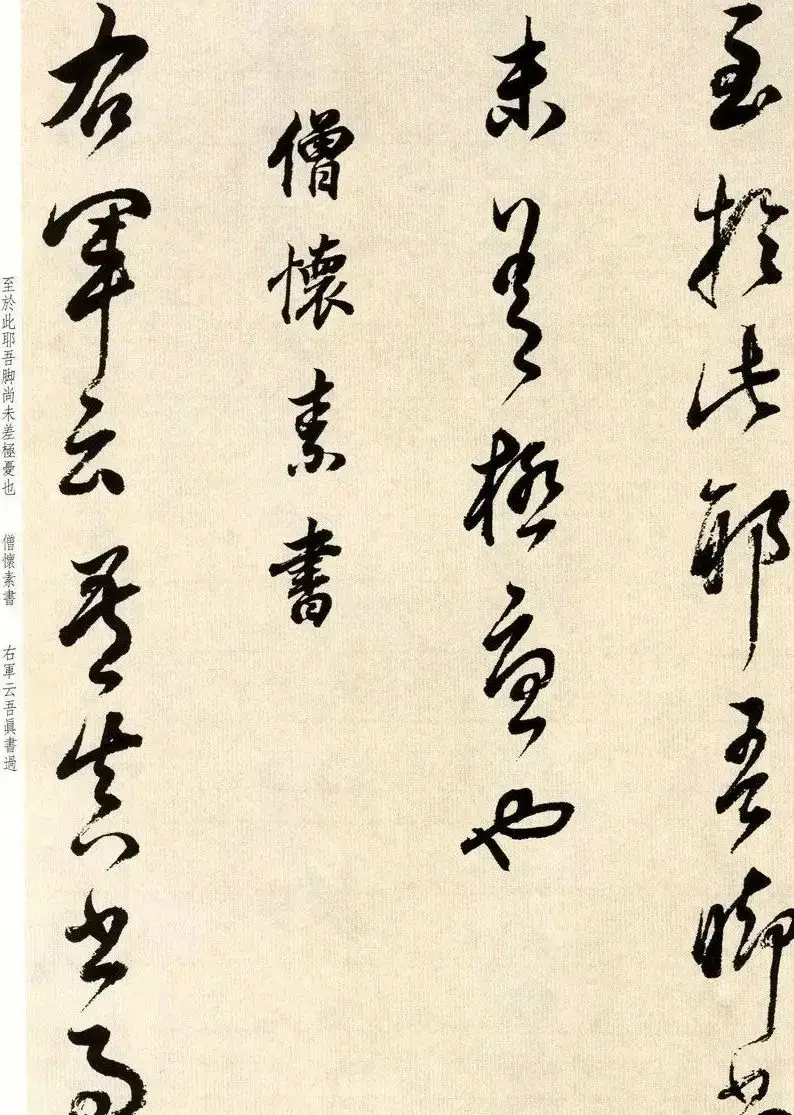 至於此耶吾脚尚
未差極憂也
僧懷素書
右軍云吾真書過
至於此耶吾脚尚未差極憂也 僧懷素書 右軍云吾眞書過